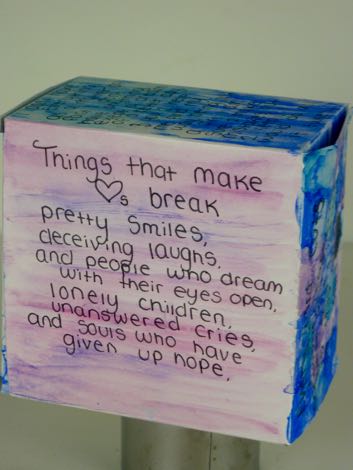 Things that make
♡s break
pretty smiles,
deceiving laughs,
and people who dream
with their eyes open,
lonely children,
unanswered cries,
and souls who have
given up hope,